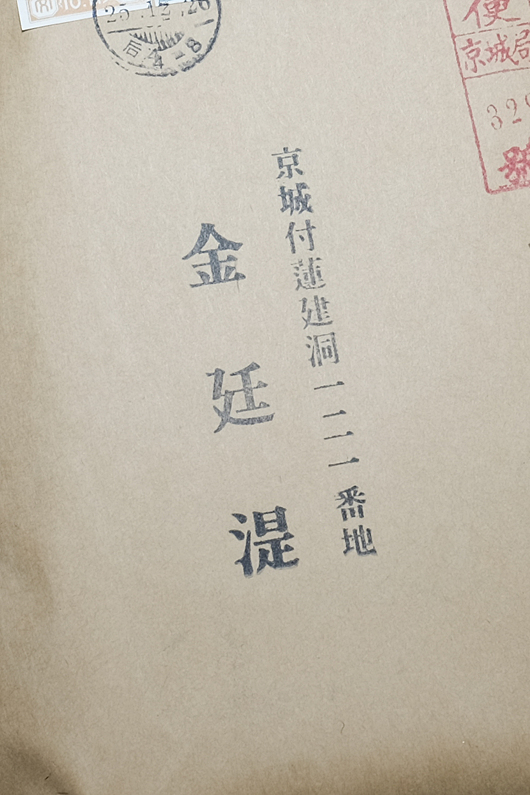 便
京城局
329
號
京城付蓮建洞一二二一番地
金廷湜
25.12.26
后4-8